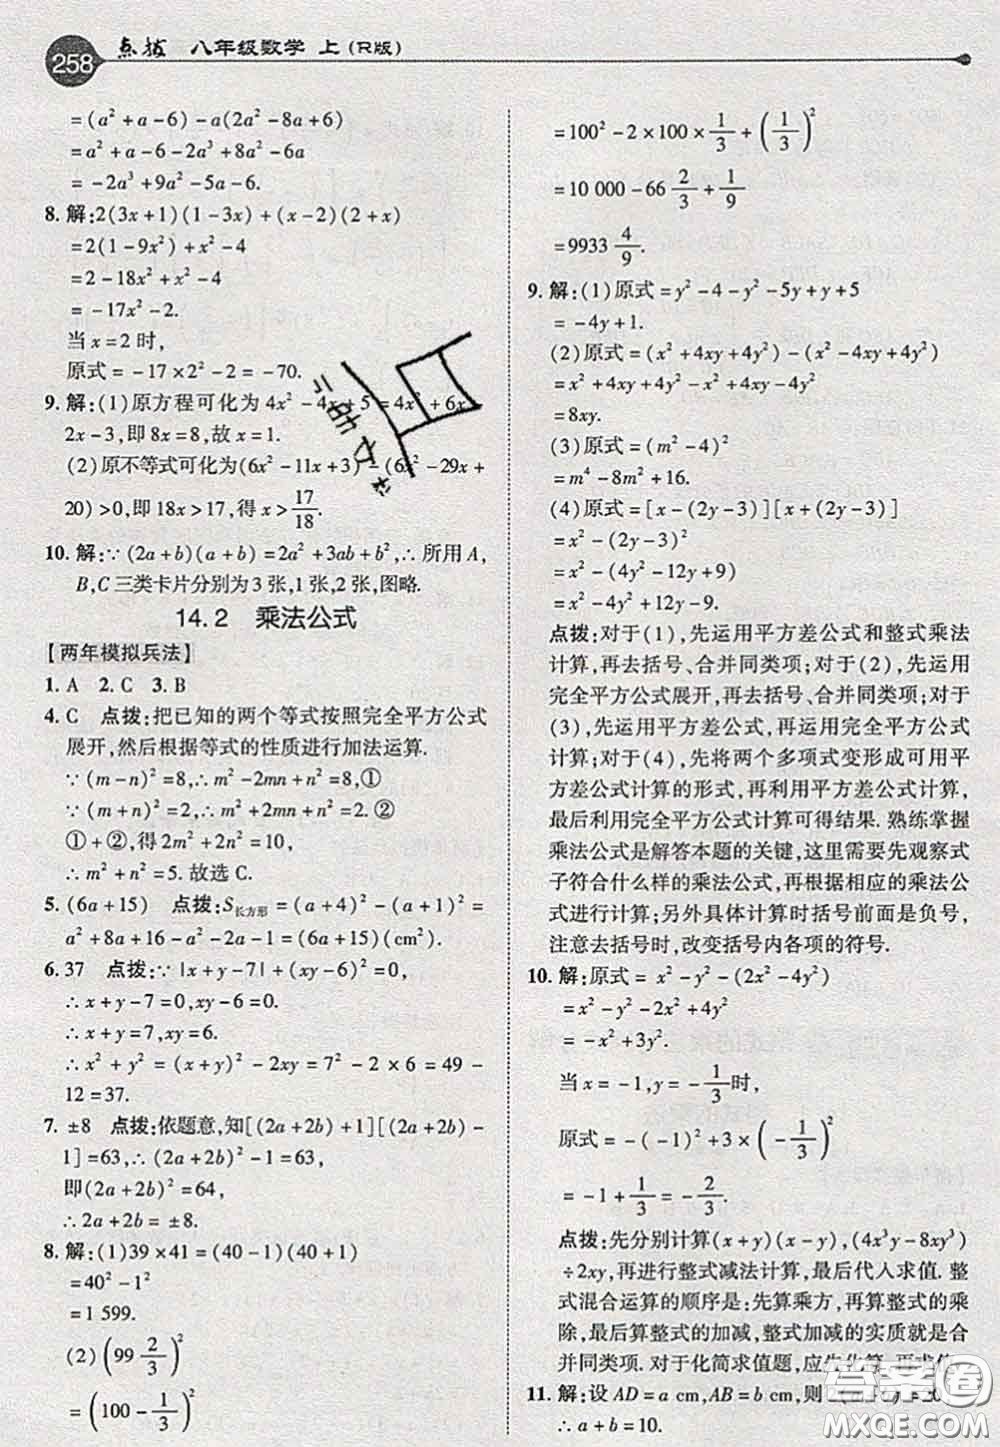 258 点拨 八年级数学 上(R版)
=(a²+a-6)-a(2a²-8a+6)
=a²+a-6-2a³+8a²-6a
=-2a³+9a²-5a-6.
8. 解:2(3x+1)(1-3x)+(x-2)(2+x)
=2(1-9x²)+x²-4
=2-18x²+x²-4
=-17x²-2.
当x=2时,
原式=-17×2²-2=-70.
9. 解:(1)原方程可化为4x²-4x+5=4x²+6x-
2x-3,即8x=8,故x=1.
(2)原不等式可化为(6x²-11x+3)-(6x²-29x+
20)>0,即18x>17,得x>17/18.
10. 解:∵(2a+b)(a+b)=2a²+3ab+b²,∴所用A,
B,C三类卡片分别为3张,1张,2张,图略.
14.2 乘法公式
【两年模拟兵法】
1. A 2. C 3. B
4. C 点拨:把已知的两个等式按照完全平方公式
展开,然后根据等式的性质进行加法运算.
∵(m-n)²=8,∴m²-2mn+n²=8,①
∵(m+n)²=2,∴m²+2mn+n²=2.②
①+②,得2m²+2n²=10,
∴m²+n²=5.故选C.
5. (6a+15) 点拨:S长方形=(a+4)²-(a+1)²=
a²+8a+16-a²-2a-1=(6a+15)(cm²).
6. 37 点拨:∵|x+y-7|+(xy-6)²=0,
∴x+y-7=0,xy-6=0.
∴x+y=7,xy=6.
∴x²+y²=(x+y)²-2xy=7²-6×2=49-
12=37.
7. ±8 点拨:依题意,知[(2a+2b)+1][(2a+2b)-
1]=63,∴(2a+2b)²-1=63,
即(2a+2b)²=64,
∴2a+2b=±8.
8. 解:(1)39×41=(40-1)(40+1)
=40²-1²
=1 599.
(2)(99 2/3)²
=(100-1/3)²
=100²-2×100×1/3+(1/3)²
=10 000-66 2/3+1/9
=9933 4/9.
9. 解:(1)原式=y²-4-y²-5y+y+5
=-4y+1.
(2)原式=(x²+4xy+4y²)-(x²-4xy+4y²)
=x²+4xy+4y²-x²+4xy-4y²
=8xy.
(3)原式=(m²-4)²
=m⁴-8m²+16.
(4)原式=[x-(2y-3)][x+(2y-3)]
=x²-(2y-3)²
=x²-(4y²-12y+9)
=x²-4y²+12y-9.
点拨:对于(1),先运用平方差公式和整式乘法
计算,再去括号、合并同类项;对于(2),先运用
完全平方公式展开,再去括号、合并同类项;对于
(3),先运用平方差公式,再运用完全平方公式
计算;对于(4),先将两个多项式变形成可用平
方差公式计算的形式,再利用平方差公式计算,
最后利用完全平方公式计算可得结果.熟练掌握
乘法公式是解答本题的关键,这里需要先观察式
子符合什么样的乘法公式,再根据相应的乘法公
式进行计算;另外具体计算时括号前面是负号,
注意去括号时,改变括号内各项的符号.
10. 解:原式=x²-y²-(2x²-4y²)
=x²-y²-2x²+4y²
=-x²+3y².
当x=-1,y=-1/3时,
原式=-(-1)²+3×(-1/3)²
=-1+1/3=-2/3.
点拨:先分别计算(x+y)(x-y),(4x³y-8xy³)
÷2xy,再进行整式减法计算,最后代入求值.整
式混合运算的顺序是:先算乘方,再算整式的乘
除,最后算整式的加减,加减的实质就是合
并同类项.对于化简求值题,应先化简,再求值.
11. 解:设AD=a cm,AB=b cm,则2(a+b)=20.
∴a+b=10.
答案圈
MXQE.COM